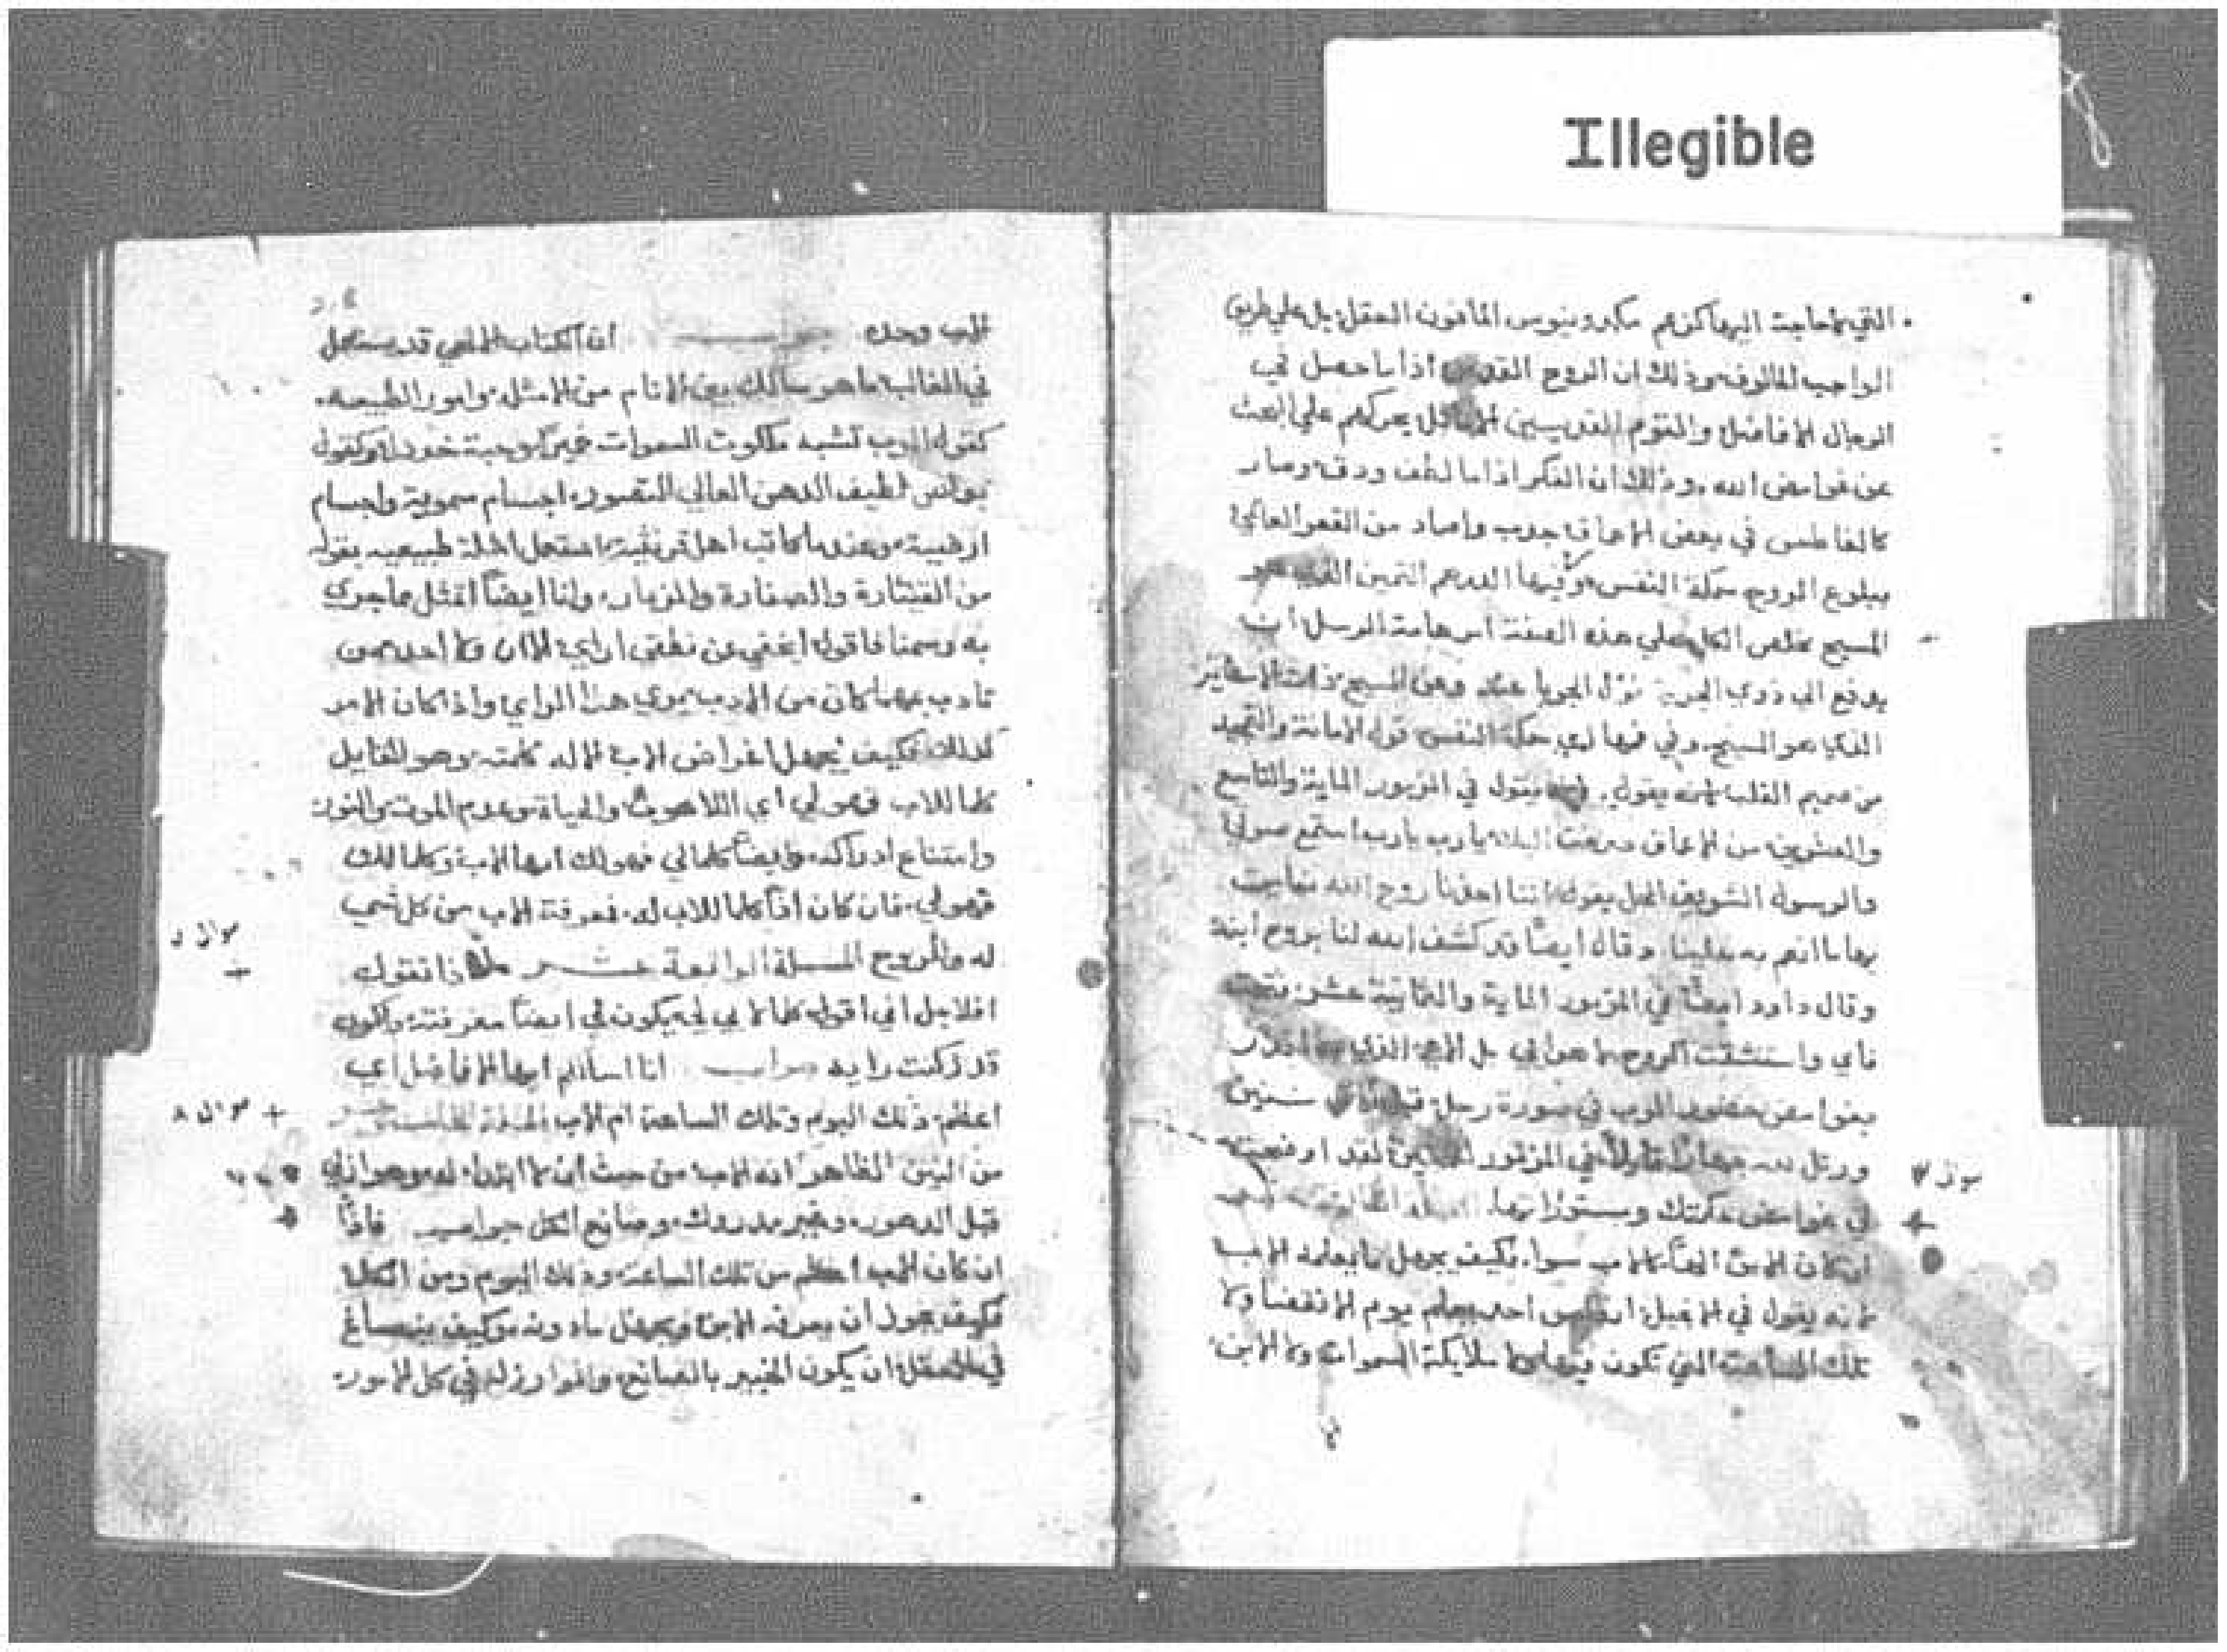 Illegible
التي لا حاجة اليها كزعم مكدونيوس المأفون العقل بل علي طريق
الواجب المالوف وذلك ان الروح القدس اذا ما حصل في
الرجال الافاضل والقوم القديسين يحركهم علي البحث
عن غوامض الله وذلك ان الفكر اذا ما لطف ودق وصار
كالغاطس في بعض الاعماق جدب واصاد من القعر العالي
ببلوغ الروح سمكة النفس وفيها الدرهم الثمين الذي هو
المسيح مخلص الكل علي هذه الصفة امر هامة الرسل ان
يدفع الي ذوي الجزية عنه وعن المسيح ذلك الاستاتير
الذي هو المسيح وفي فمها اي سمكة النفس قول الامانة والتمجيد
من صميم القلب يقول في المزبور الماية والتاسع
والعشرين من الاعماق صرخت اليك يارب يارب استمع صوتي
والرسول الشريف يقول اننا اخذنا روح الله نعاين
بها ما انعم به علينا وقال ايضا قد كشف الله لنا بروح ابنه
وقال داود ايضا في المزبور الماية والثامنة عشر فتحت
فاي واستنشقت الروح
بغوامض حضور الرب في صورة رجل قبل سنين
ورتل له جهارا قايلا في المزمور اوضحت
لي غوامض حكمتك ومستوراتها
سوال
ان كان الابن الها كالاب سوا فكيف يجهل ما يعلمه الاب
لانه يقول في الانجيل ان ليس احد يعلم يوم الانقضا ولا
تلك الساعة التي تكون فيها ولا ملايكة السموات ولا الابن
الاب وحده جواب ان الكتاب الالهي قد يستعمل
في الغالب ما هو سالك بين الانام من الامثلة وامور الطبيعه
كقول الرب تشبه ملكوت السموات خميرا وحبة خردل وكقول
بولس لطيف الذهن العالي التصور اجسام سموية واجسام
ارضية وعند ما كاتب اهل قرنثية استعمل امثلة طبيعيه بقوله
من القيثارة والصفارة والمزمار وانا ايضا اتمثل بما جري
به وسمنا فاقول ايخفي عن نطقي اراي الان ولا احد ممن
تادب مهما كان من الادب يروي هذا الراي واذا كان الامر
كذلك فكيف يجهل اغراض الاب الاله كلمته وهو القايل
كلما للاب فهو لي اي اللاهوت والحياة وعدم الموت والنور
وامتناع ادراكه وايضا كلما لي فهو لك ايها الاب وكلما لك
فهو لي فان كان اذا كلما للاب له فمعرفة الاب من كل شي
له والروح المسلة الرابعة عشر ماذا تقول
افلاجل اني اقول كلما لابي لي يكون لي ايضا معرفته واكون
قد زكنت رايه جواب انا اسالكم ايها الافاضل اي
اعظم ذلك اليوم وتلك الساعة ام الاب
من البين الظاهر انه الاب من حيث ان لا ابتدا له وهو ازلي
قبل الدهور وغير مدروك وصانع الكل جواب فاذا
ان كان الاب اعظم من تلك الساعة وذلك اليوم ومن الكل
فكيف يجوز ان يعرفه الابن ويجهل ما دونه وكيف ينساغ
في العقل ان يكون الخبير بالصانع والموازر له في كل الامور
سوال
سوال